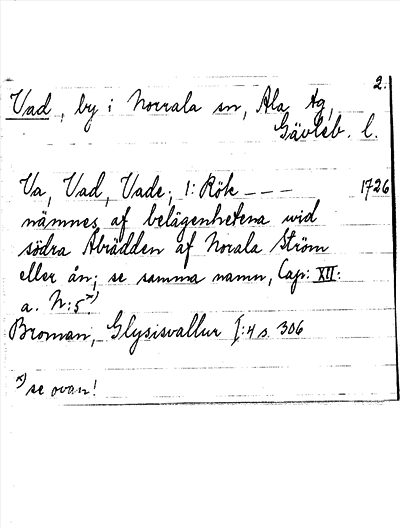 2.
Vad, by i Norrala sn, Ala tg,
Gävleb. l.
Va, Vad, Vade; 1: Rök --- 1726
nämnes af belägenhetena wid
södra Åbrädden af Norala Ström
eller ån; se samma namn, Cap: XII:
a. N:5.x)
Broman, Glysisvallur I:4 s. 306
x) se ovan!